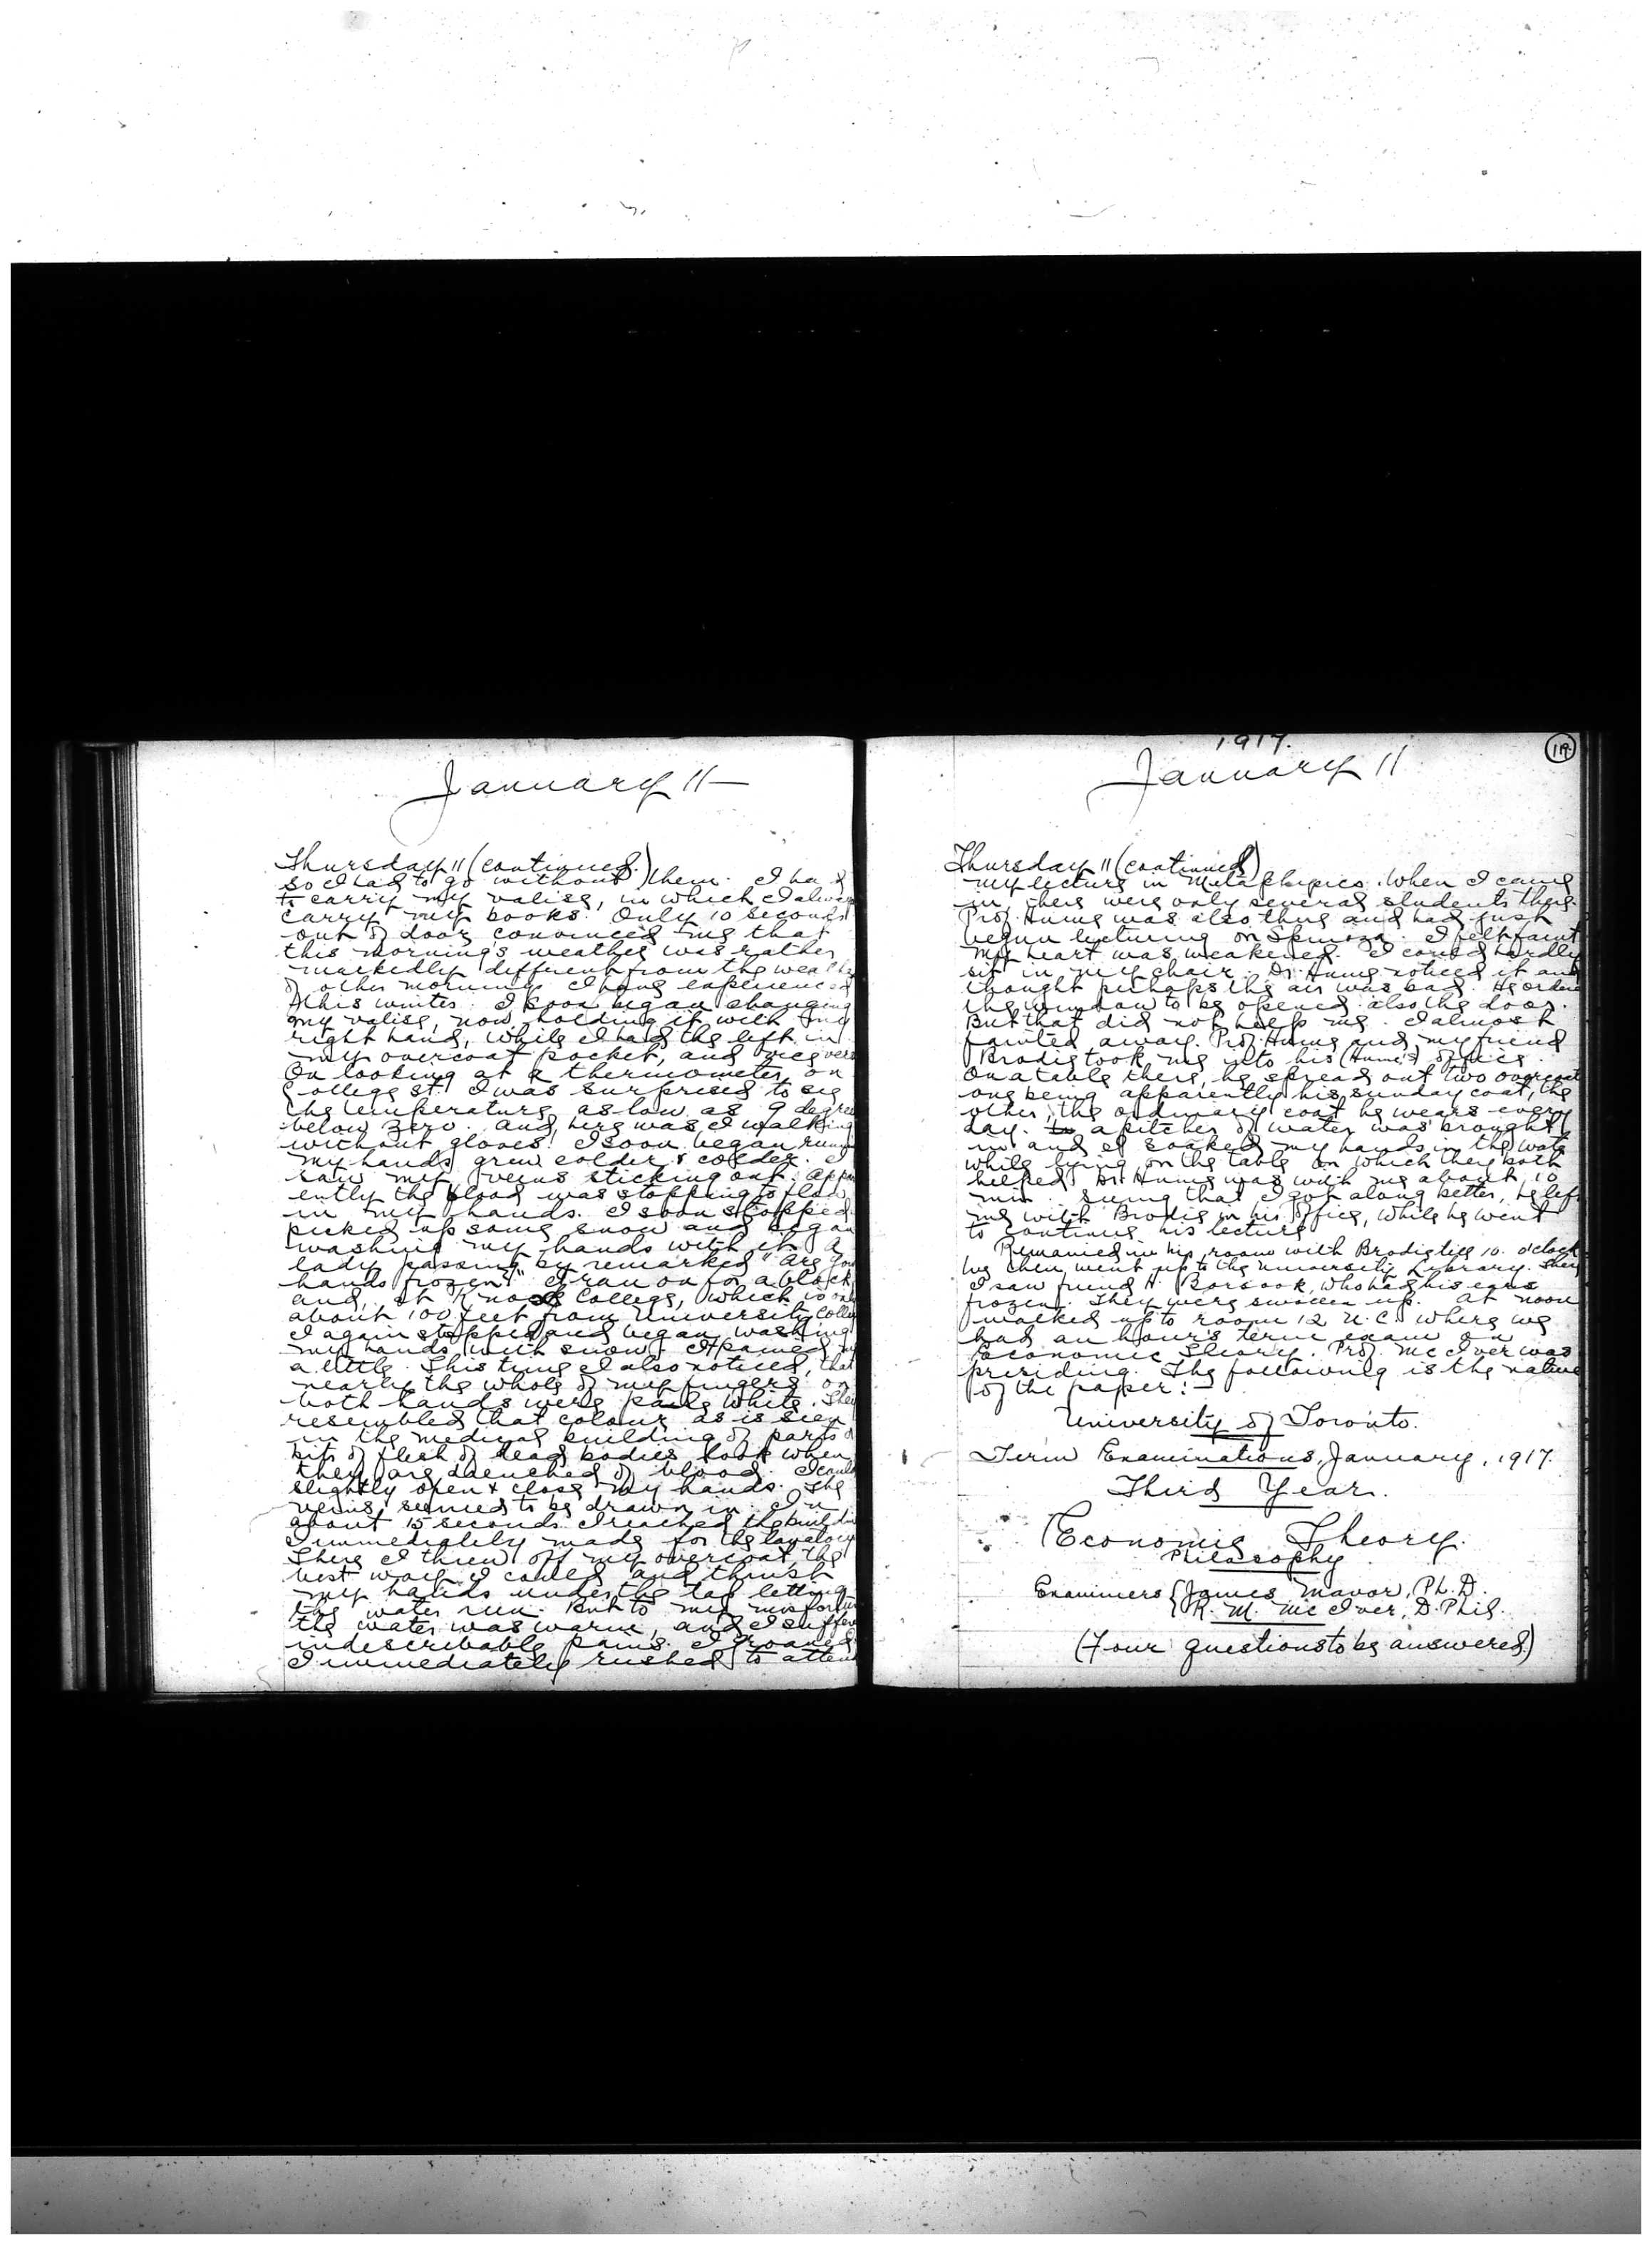 January 11
Thursday 11 (continued.)
so I had to go without them. I had
to carry my valise, in which I always
carry my books. Only 10 seconds
out of door convinced me that
this morning's weather was rather
markedly different from the weather
of other mornings I have experienced
this winter. I soon began changing
my valise, now holding it with my
right hand, while I had the left in
my overcoat pocket, and vice vers
On looking at a thermometer on
College St. I was surprised to see
the temperature as low as 9 degrees
below zero. And here was I walking
without gloves! I soon began runn
my hands grew colder & colder. I
saw my veins sticking out: appa
ently the blood was stopping to flow
in my hands. I soon stopped
picked up some snow and began
washing my hands with it. A
lady passing by remarked "Are you
hands frozen?" I ran on for a block
and, at Knox College, which is only
about 100 feet from University Colle
I again stopped and began washing
my hands with snow. It pained me
a little. This time I also noticed, that
nearly the whole of my fingers on
both hands were pale white. They
resembled that colour as is seen
in the medical building of parts of
bits of flesh of dead bodies look when
they are drenched of blood. I could
slightly open & close my hands. The
veins seemed to be drawn in. In
about 15 seconds I reached the buildin
I immediately made for the lavatory
There I threw off my overcoat, the
best way I could and thrust
my hands under the tap letting
the water run. But to my misfortun
the water was warm, and I suffere
indescribable pains. I groaned
I immediately rushed to atten
1917.
January 11
Thursday 11 (continued)
my lecture in Metaphysics. When I came
in, there were only several students there
Prof. Hume was also there and had just
begun lecturing on Spinoza. I felt faint
my heart was weakened. I could hardly
sit in my chair. Dr. Hume noticed it and
thought perhaps the air was bad. He ordere
the window to be opened also the door.
But that did not help me. I almost
fainted away. Prof. Hume and my friend
Brodie took me into his (Hume's) office.
On a table there, he spread out two overcoat
one being apparently his sunday coat, the
other, the ordinary coat he wears every
day. A pitcher of water was brought
in and I soaked my hands in the wate
while lying on the table on which they both
helped. Dr. Hume was with me about 10
min. seeing that I got along better, he left
me with Brodie in his office, while he went
to continue his lecture
Remained in his room with Brodie till 10. o'clock
We then went up to the university Library. There
I saw friend H. Borsook, who had his ears
frozen. They were swollen up. At noon
walked up to room 12 U.C. where we
had an hour's term exam on
Economic Theory. Prof. McIver was
presiding. The following is the nature
of the paper:-
University of Toronto.
Term Examinations, January, 1917.
Third Year.
Economic Theory.
Philosophy
Examiners {James Mavor, Ph.D.
{R. M. McIver, D. Phil.
(Four questions to be answered)